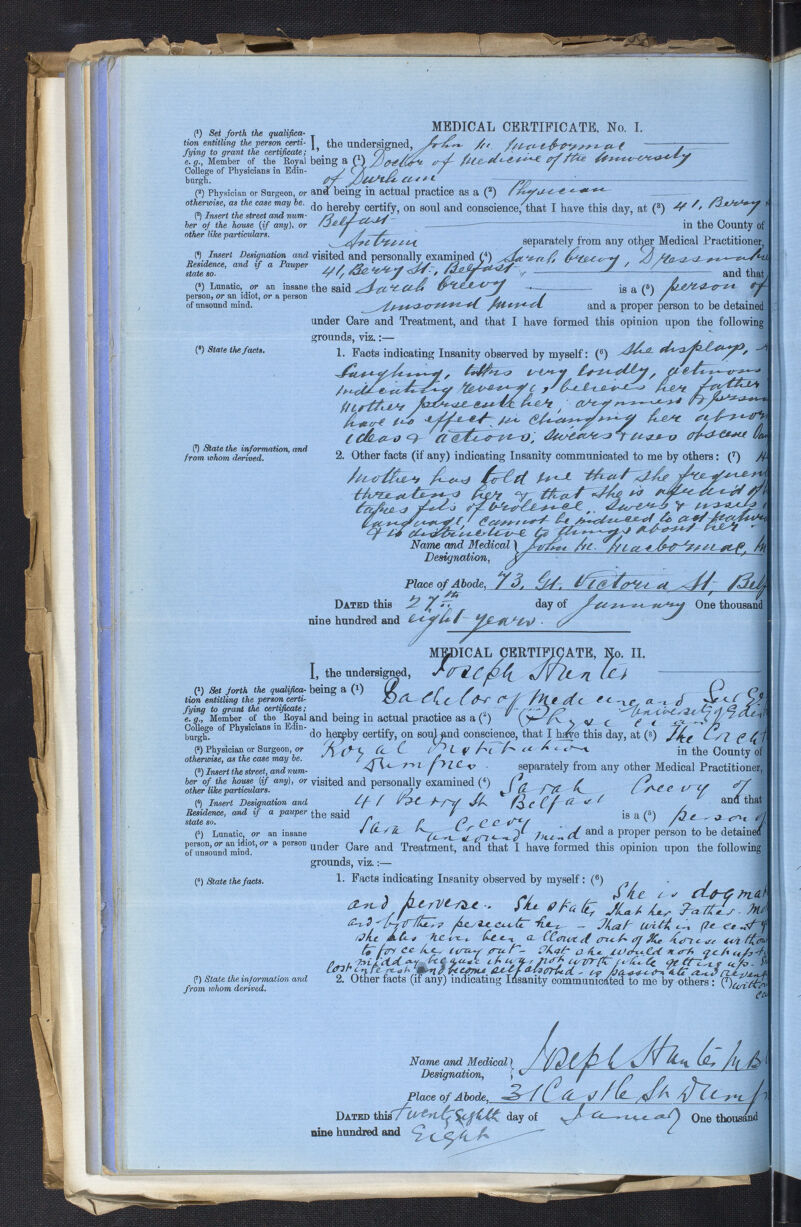 MEDICAL CERTIFICATE, No. I.
(¹) Set forth the qualifica-
tion entitling the person certi-
fying to grant the certificate;
e.g., Member of the Royal
College of Physicians in Edin-
burgh.
(²) Physician or Surgeon, or
otherwise, as the case may be.
(³) Insert the street and num-
ber of the house (if any), or
other like particulars.
(⁴) Insert Designation and
Residence, and if a Pauper
state so.
(⁵) Lunatic, or an insane
person, or an idiot, or a person
of unsound mind.
I, the undersigned, John M. MacCormac
being a (¹) Doctor of Medicine of the University
of Durham
and being in actual practice as a (²) Physician
do hereby certify, on soul and conscience, that I have this day, at (³) 41, Berry
Belfast in the County of
Antrim separately from any other Medical Practitioner,
visited and personally examined (⁴) Sarah Creevy, Dressmake
41, Berry St., Belfast and that
the said Sarah Creevy is a (⁵) person of
unsound mind and a proper person to be detained
under Care and Treatment, and that I have formed this opinion upon the following
grounds, viz.:—
(⁶) State the facts.
1. Facts indicating Insanity observed by myself: (⁶) She displays,
laughing, talks very loudly, actions
indicating revenge, believes her father
mother persecute her, argument &
have no effect in changing her abnor
ideas & actions, swears & uses obscene lan
(⁷) State the information, and
from whom derived.
2. Other facts (if any) indicating Insanity communicated to me by others: (⁷) H
mother has told me that she frequen
threatens her & that she is afraid of
takes fits of violence. Swears & uses
language, cannot be induced to act
& is distructive to things about her.
Name and Medical
Designation, John M. MacCormac, M
Place of Abode, 73, Gt. Victoria St, Belf
DATED this 27th day of January One thousand
nine hundred and eight years.
MEDICAL CERTIFICATE, No. II.
(¹) Set forth the qualifica-
tion entitling the person certi-
fying to grant the certificate;
e.g., Member of the Royal
College of Physicians in Edin-
burgh.
(²) Physician or Surgeon, or
otherwise, as the case may be.
(³) Insert the street, and num-
ber of the house (if any), or
other like particulars.
(⁴) Insert Designation and
Residence, and if a pauper
state so.
(⁵) Lunatic, or an insane
person, or an idiot, or a person
of unsound mind.
I, the undersigned, Joseph Hunter
being a (¹) Bachelor of Medicine and Surge
University of Edin
and being in actual practice as a (²) Physician
do hereby certify, on soul and conscience, that I have this day, at (³) The Cricht
Royal Institution in the County of
Dumfries separately from any other Medical Practitioner,
visited and personally examined (⁴) Sarah Creevy of
41 Berry St Belfast and that
the said Sarah Creevy is a (⁵) person of
unsound mind and a proper person to be detained
under Care and Treatment, and that I have formed this opinion upon the following
grounds, viz.:—
(⁶) State the facts.
1. Facts indicating Insanity observed by myself: (⁶)
She is dogmat
and perverse. She states that her Father. Mo
and brothers persecute her – That within recent y
she has never been allowed out of the house withou
to force her way out – That she would not get up t
midday because it was not worth while getting up.
lost interest and become self absorbed – is passionate and
(⁷) State the information and
from whom derived.
2. Other facts (if any) indicating Insanity communicated to me by others: (⁷) withou
ca
Name and Medical
Designation, Joseph Hunter MB
Place of Abode, 31 Castle St Dumf
DATED this Twenty Eighth day of January One thousand
nine hundred and Eight